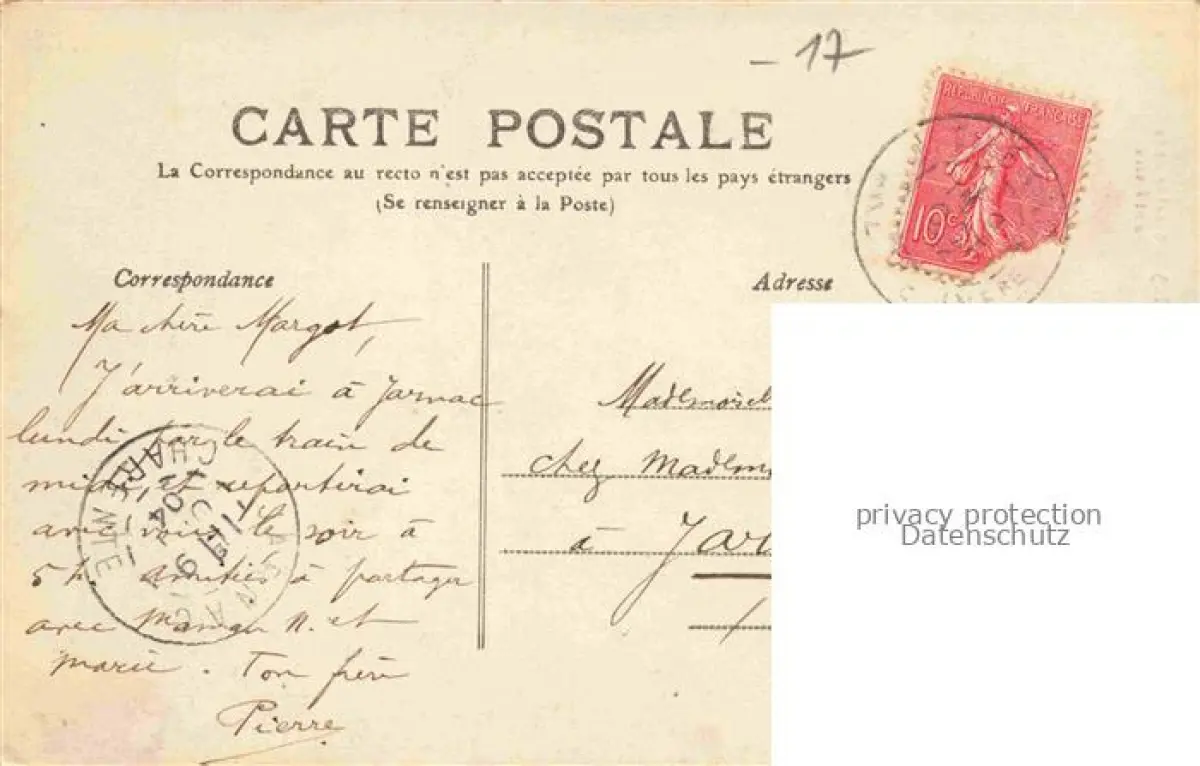 - 17
CARTE POSTALE
La Correspondance au recto n'est pas acceptée par tous les pays étrangers
(Se renseigner à la Poste)
RÉPUBLIQUE FRANÇAISE
10c
Correspondance
Ma chère Margot,
J'arriverai à Jarnac
lundi par le train de
midi, et repartirai
avec vous le soir à
5 h. Amitiés à partager
avec Maman N. et
Marie. Ton frère
Pierre
JARNAC
CHARENTE
04
Adresse
Mademoisel
chez Madem
à Jar
privacy protection
Datenschutz